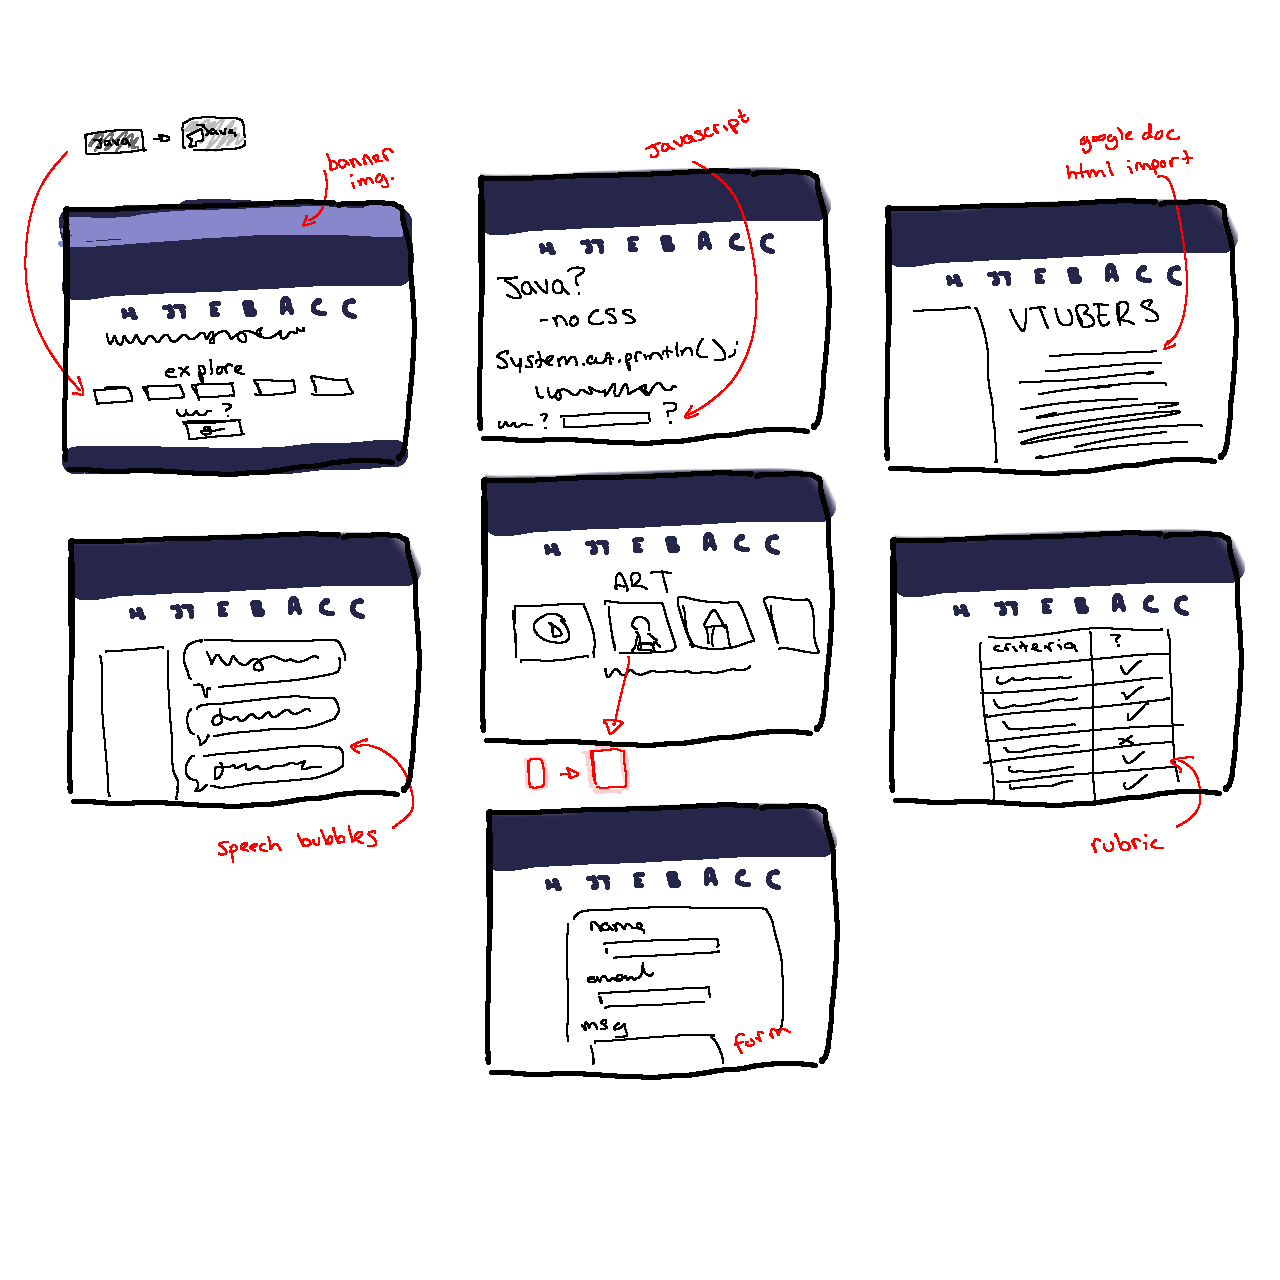 Java → Java
banner
img.
H JT E B A C C
explore
?
Javascript
H JT E B A C C
Java?
-no CSS
System.out.println();
? ?
google doc
html import
H JT E B A C C
VTUBERS
H JT E B A C C
speech bubbles
H JT E B A C C
ART
H JT E B A C C
criteria ?
rubric
H JT E B A C C
name
email
msg
form